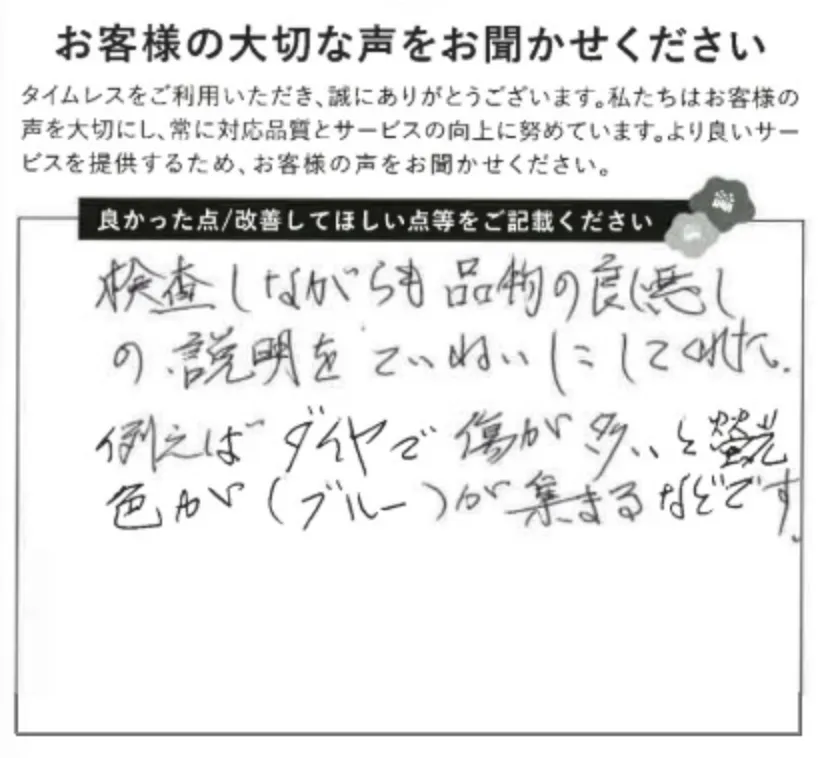 お客様の大切な声をお聞かせください
タイムレスをご利用いただき、誠にありがとうございます。私たちはお客様の
声を大切にし、常に対応品質とサービスの向上に努めています。より良いサー
ビスを提供するため、お客様の声をお聞かせください。
良かった点/改善してほしい点等をご記載ください
検査しながらも品物の良し悪し
の説明をていねいにしてくれた。
例えばダイヤで傷が多いと蛍光
色が(ブルー)が集まるなどです。